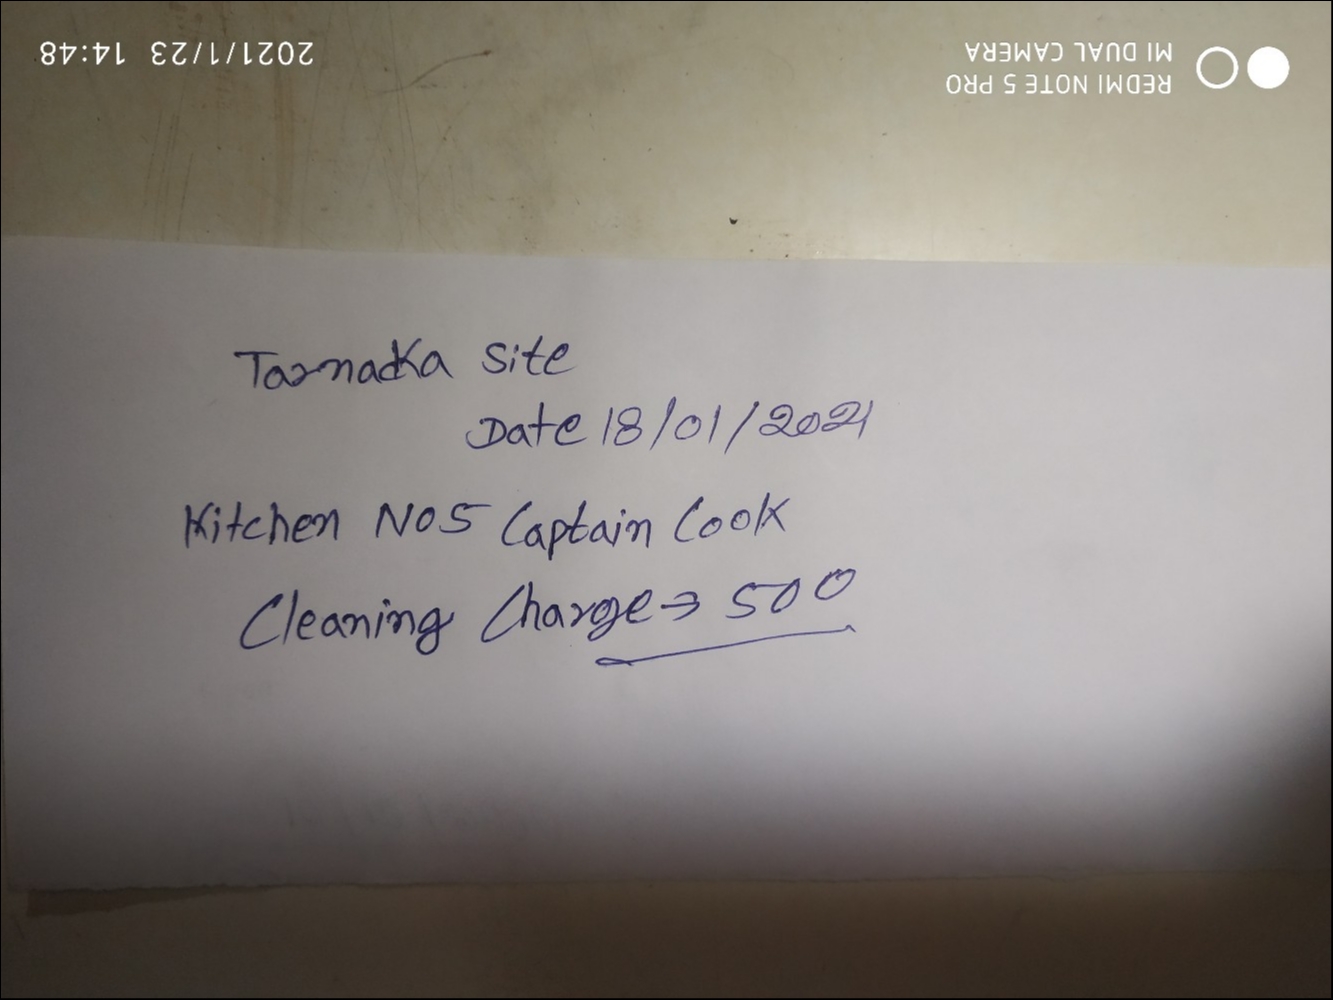 Tarnaka Site
Date 18/01/2021
Kitchen No 5 Captain Cook
Cleaning Charge → 500
REDMI NOTE 5 PRO
MI DUAL CAMERA
2021/1/23 14:48